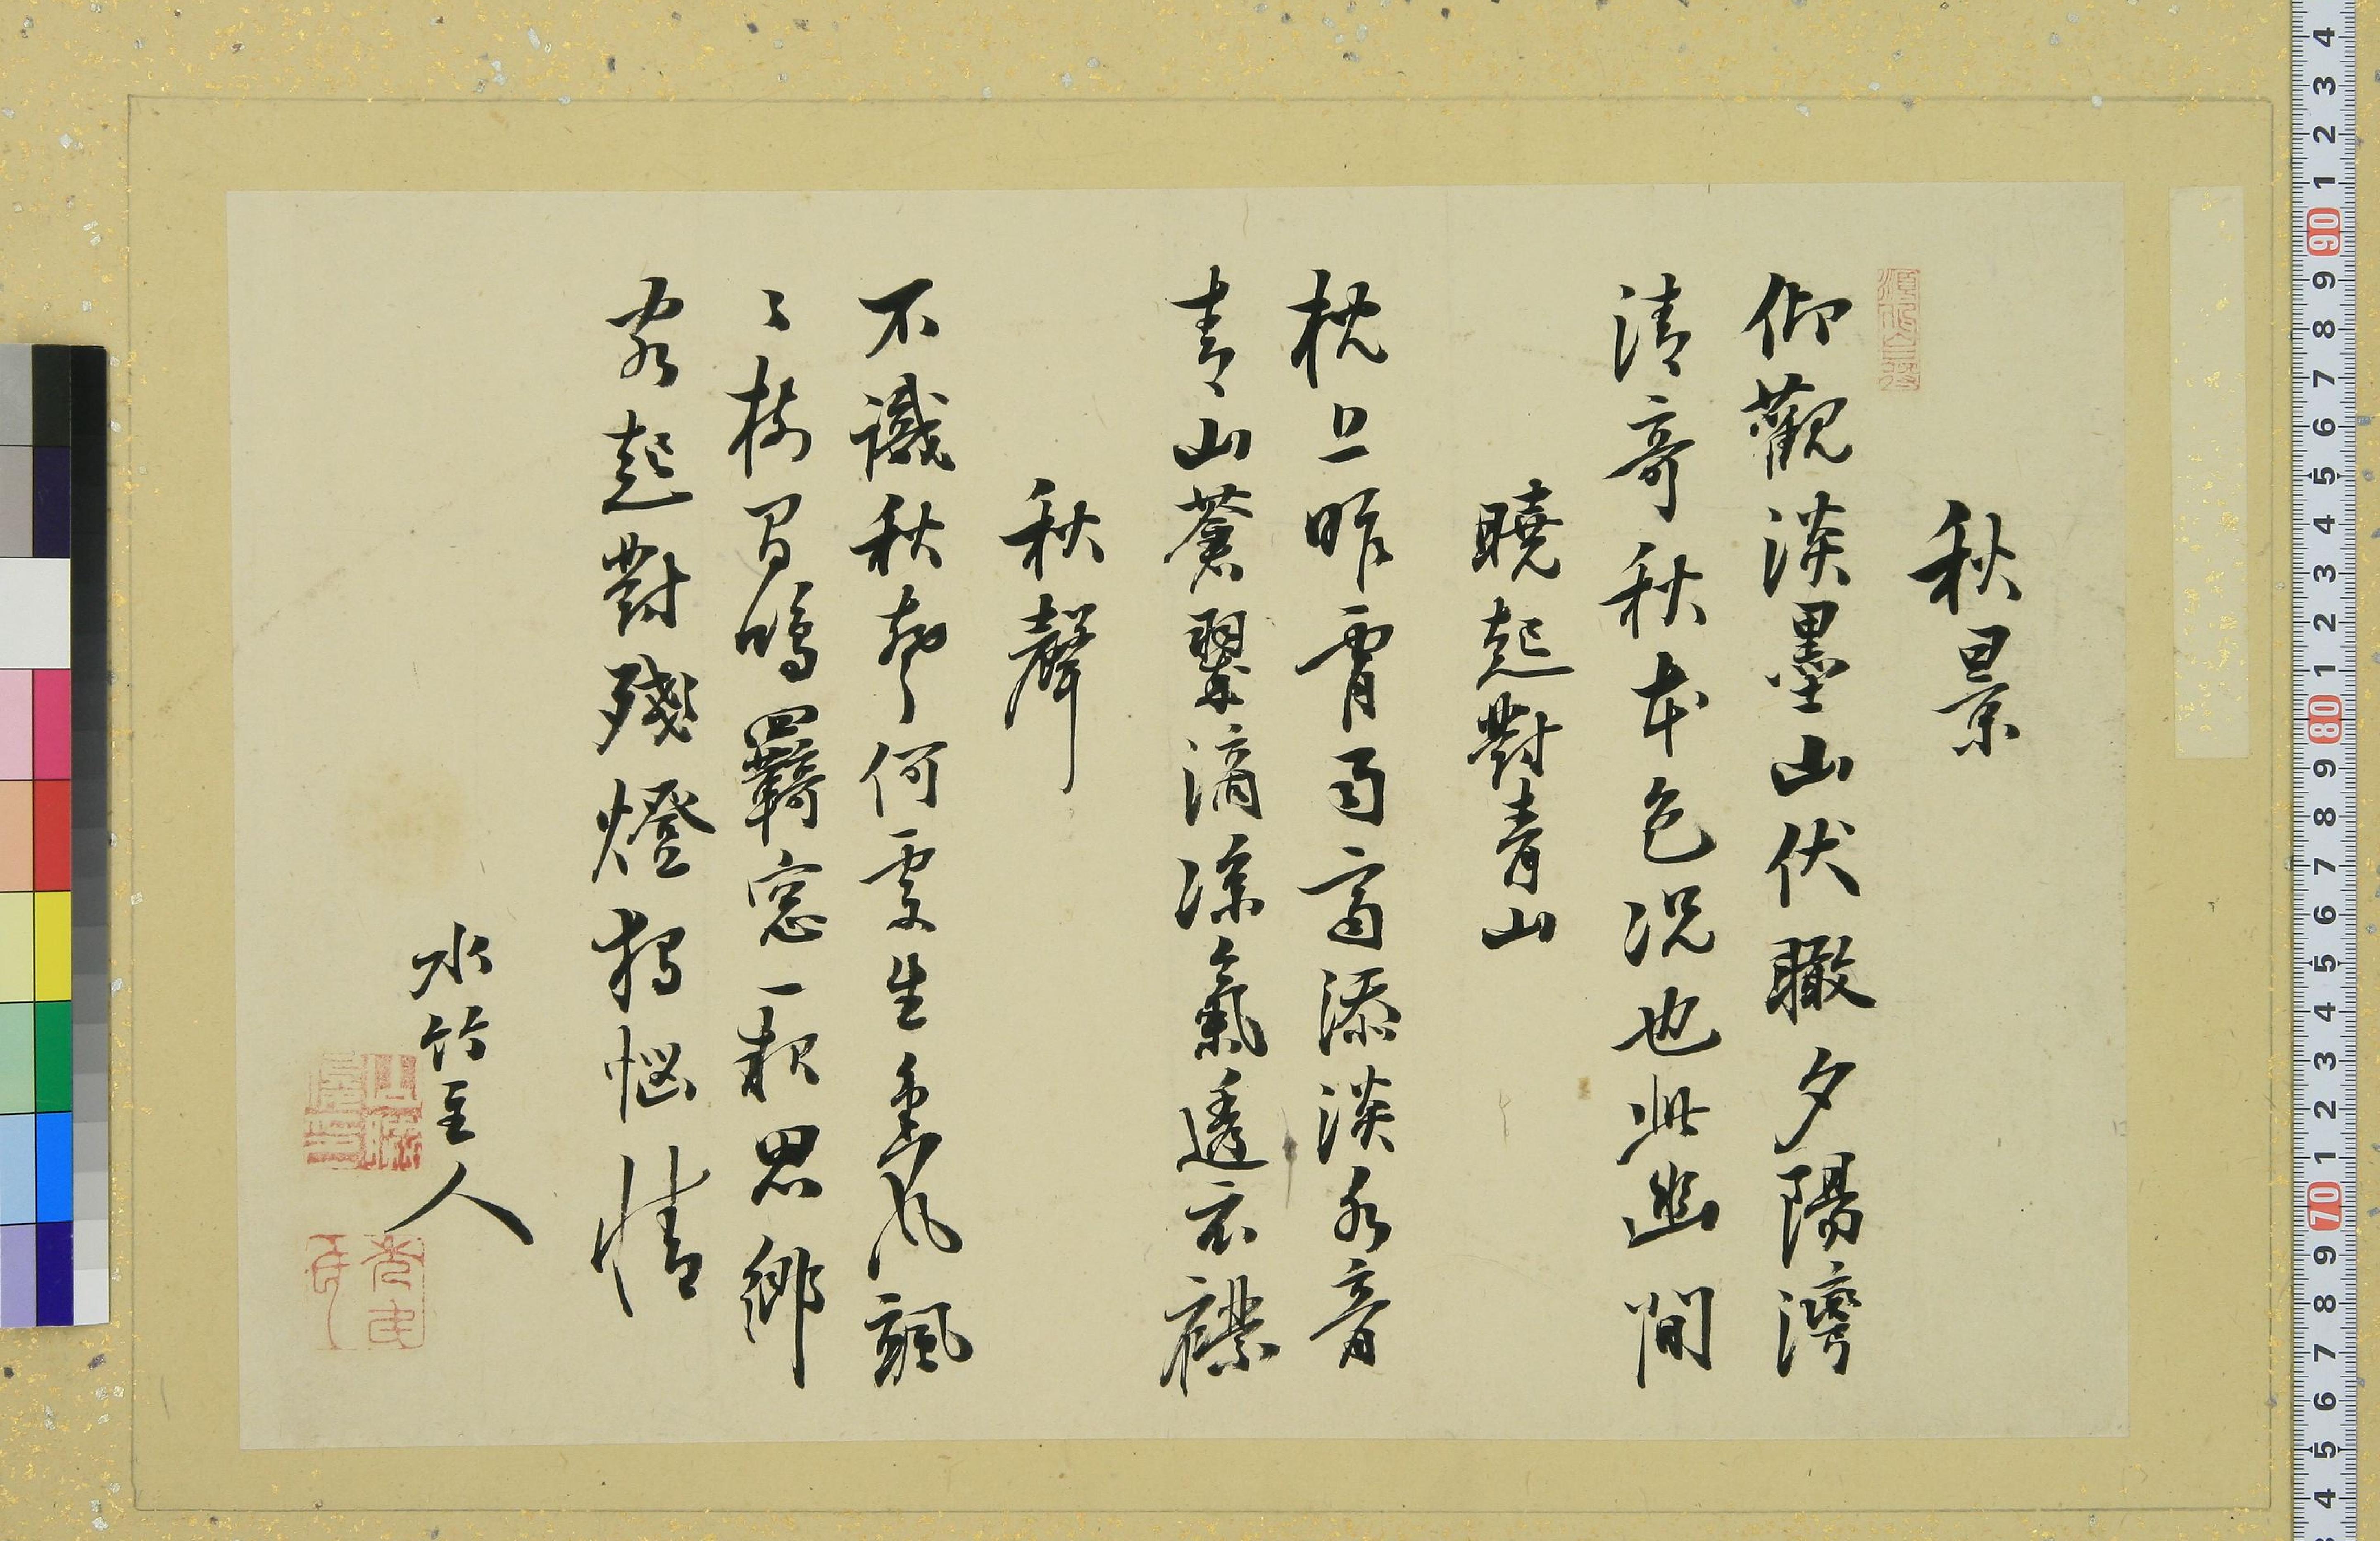 秋景
仰觀淡墨山伏瞰夕陽灣
清竒秋本色況也此幽間
曉起對青山
枕上昨宵雨添淡水音
青山蒼翠滴涼氣透衣襟
秋聲
不識秋聲何處生風颯
々樹間鳴羈窓一思鄉
客起對殘燈獨惱情
水竹主人